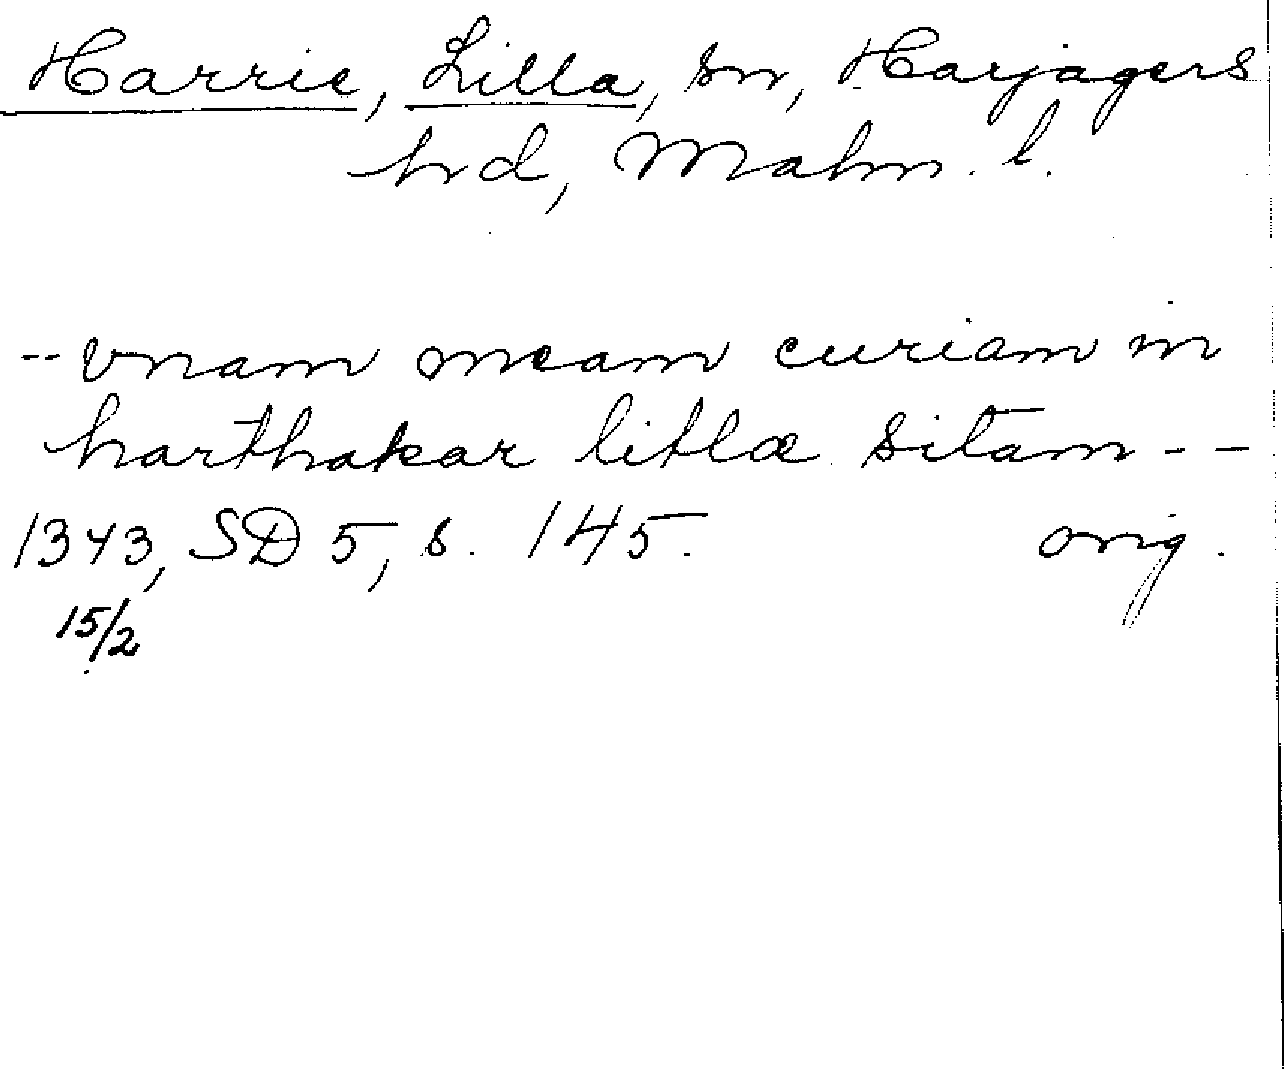 Harrie, Lilla, sn, Harjagers
hd, Malm. l.
-- vnam meam curiam in
harthakar litlæ sitam --
1343, SD 5, s. 145. orig.
15/2